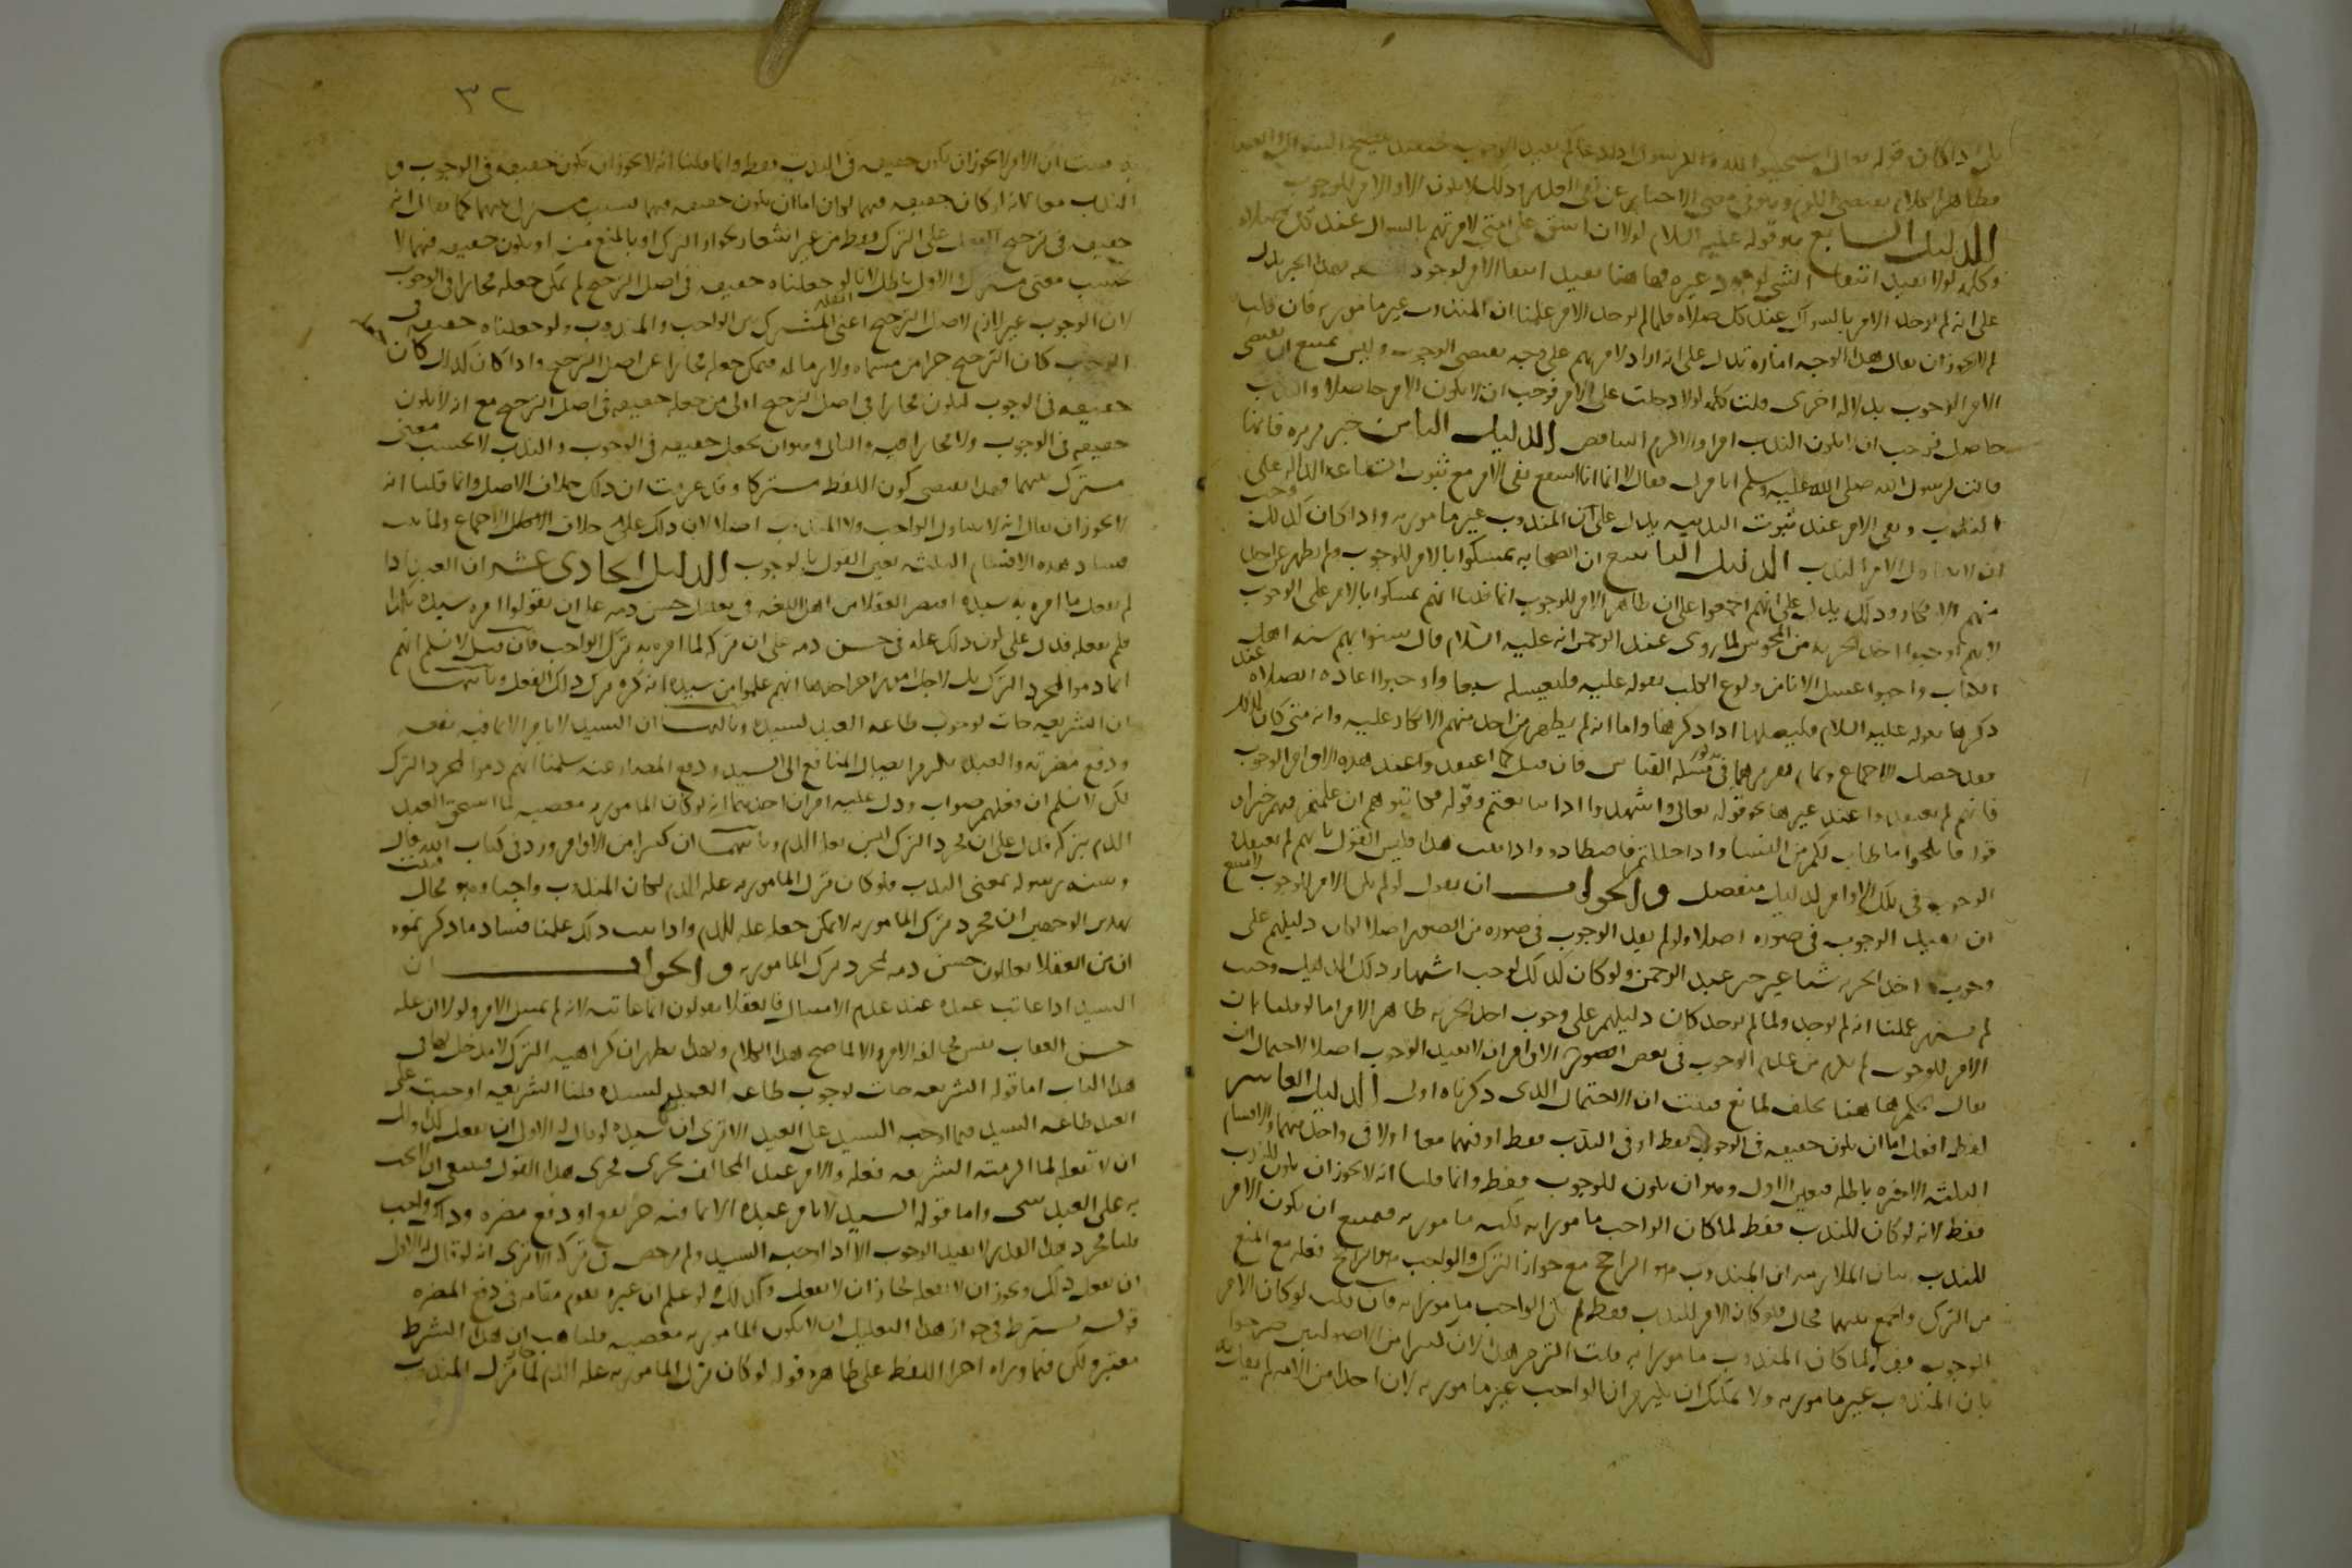 بلى اذا كان قوله تعالى استجيبوا لله وللرسول اذا دعاكم يفيد الوجوب
فظاهر الكلام يقتضى اللوم وهو فى معنى الاخبار عن نفى العذر وذلك لا يكون الا والامر للوجوب
الدليل السابع هو قوله عليه السلام لولا ان اشق على امتى لامرتهم بالسواك عند كل صلاة
وكلمة لولا تفيد انتفاء الشى لوجود غيره فهاهنا تفيد انتفا الامر لوجود المشقه فهذا الخبر يدل
على انه لم يوجد الامر بالسواك عند كل صلاه فلما لم يوجد الامر علمنا ان المندوب غير مامور به فان قلت
لم لا يجوز ان يقال هذا الوجه امارة تدل على انه اراد لامرتهم على وجه يقتضى الوجوب وليس يمتنع ان يقتضى
الامر الوجوب بدلالة اخرى قلت كلمة لولا دخلت على الامر فوجب ان لا يكون الامر حاصلا والندب
حاصل فوجب ان لا يكون الندب امرا والا لزم التناقض الدليل الثامن خبر بريره فانها
قالت لرسول الله صلى الله عليه وسلم اتامرنى فقال لا انما انا شافع نفى الامر مع ثبوت الشفاعه الدالة على
الندب ونفى الامر عند ثبوت الندبيه يدل على ان المندوب غير مامور به واذا كان كذلك وجب
ان لا يتناول الامر الندب الدليل التاسع ان الصحابه تمسكوا بالامر للوجوب ولم يظهر عن احد
منهم الانكار وذلك يدل على انهم اجمعوا على ان ظاهر الامر للوجوب انما قلنا انهم تمسكوا بالامر على الوجوب
لانهم اوجبوا اخذ الجزيه من المجوس لما روى عبد الرحمن انه عليه السلام قال سنوا بهم سنه اهل
الكتاب واوجبوا غسل الانا من ولوغ الكلب بقوله عليه فليغسله سبعا واوجبوا اعاده الصلاه عند
ذكرها بقوله عليه السلام فليصلها اذا ذكرها واما انه لم يظهر من احد منهم الانكار عليه وانه متى كان كذلك
فقد حصل الاجماع وتمام تقريرهما فى مسئلة القياس فان قيل كما اعتقدوا عند هذه الاوامر الوجوب
فانهم لم يعتقدوا عند غيرها نحو قوله تعالى واشهدوا اذا تبايعتم وقوله فكاتبوهم ان علمتم فيهم خيرا و
قوله فانكحوا ما طاب لكم من النسا واذا حللتم فاصطادوا واذا ثبت هذا فليس القول بانهم لم يعتقدوا
الوجوب فى تلك الاوامر لدليل منفصل والجواب ان نقول لو لم يكن الامر للوجوب لامتنع
ان يفيد الوجوب فى صورة اصلا ولو لم يفد الوجوب فى صوره من الصور اصلا لكان دليلهم على
وجوب اخذ الجزيه شيا غير خبر عبد الرحمن ولو كان كذلك لوجب اشتهار ذلك الدليل وحيث
لم يشتهر علمنا انه لم يوجد ولما لم يوجد كان دليلهم على وجوب اخذ الجزيه ظاهر الامر اما لو قلنا بان
الامر للوجوب لم يلزم من عدم الوجوب فى بعض الصور الاوامر ان لا يفيد الوجوب اصلا لاحتمال ان
يقال الحكم هاهنا تخلف لمانع فثبت ان الاحتمال الذى ذكرناه اولى الدليل العاشر
لفظة افعل اما ان يكون حقيقه فى الوجوب فقط او فى الندب فقط او فيهما معا او لا فى واحد منهما والاقسام
الثلثه الاخيره باطله فتعين الاول وهو ان يكون للوجوب فقط وانما قلنا انه لا يجوز ان يكون للندب
فقط لانه لو كان للندب فقط لما كان الواجب مامورا به لكنه مامور به فيمتنع ان يكون الامر
للندب بيان الملازمه ان المندوب هو الراجح مع جواز الترك والواجب هو الراجح فعله مع المنع
من الترك والجمع بينهما محال فلو كان الامر للندب فقط لم يكن الواجب مامورا به فان قلت لو كان الامر
الوجوب فقط لما كان المندوب مامورا به قلت التزم هذا لان كثيرا من الاصوليين صرحوا
بان المندوب غير مامور به ولا يمكنك ان يلتزم ان الواجب غير مامور به لان احدا من الامه لم يقل به
٣٢
فثبت ان الامر لا يجوز ان يكون حقيقه فى الندب فقط وانما قلنا انه لا يجوز ان يكون حقيقه فى الوجوب و
الندب معا لانه لو كان حقيقه فيهما لكان اما ان يكون حقيقه فيهما بحسب معنى مشترك بينهما كما يقال انه
حقيقه فى ترجيح الفعل على الترك فقط من غير اشعار بجواز الترك او بالمنع منه او يكون حقيقه فيهما لا
بحسب معنى مشترك والاول باطل لانا لو جعلناه حقيقه فى اصل الترجيح لم يمكن جعله مجازا فى الوجوب
لان الوجوب غير لازم لاصل الترجيح اعنى القدر المشترك بين الواجب والمندوب ولو جعلناه حقيقه فى
الوجوب كان الترجيح جزا من مسماه ولازما له فيمكن جعله مجازا عن اصل الترجيح واذا كان كذلك كان جعله
حقيقه فى الوجوب ليكون مجازا فى اصل الترجيح اولى من جعله حقيقه فى اصل الترجيح مع انه لا يكون
حقيقه فى الوجوب ولا مجازا فيه والثانى وهو ان يجعل حقيقه فى الوجوب والندب لا بحسب معنى
مشترك بينهما فهذا يقتضى كون اللفظ مشتركا وقد عرفت ان ذلك خلاف الاصل وانما قلنا انه
لا يجوز ان يقال انه لا يتناول الواجب ولا المندوب اصلا لان ذلك على خلاف الاجماع ولما ثبت
فساد هذه الاقسام الثلثه تعين القول بالوجوب الدليل الحادى عشر ان العبد اذا
لم يفعل ما امره به سيده اقتصر العقلا من اهل اللغه فى تعليل حسن ذمه على ان يقولوا امره سيده بكذا
فلم يفعله فدل على كون ذلك عله فى حسن ذمه على ان تركه لما امره به ترك الواجب فان قيل لا نسلم انهم
انما ذموا لمجرد الترك بل لاجل امور اخر احدها انهم علموا من سيده انه كره ترك ذلك الفعل وثانيها
ان الشريعه جات لوجوب طاعه العبد لسيده وثالثها ان السيد لا يامر الا بما فيه نفعه
ودفع مضرته والعبد يلزم ايصال المنافع الى السيد ودفع المضار عنه سلمنا انهم ذموا لمجرد الترك
لكن لا نسلم ان فعلهم صواب ودل عليه امران احدهما انه لو كان المامور به معصيه لما استحق العبد
الذم بتركه فدل على ان مجرد الترك ليس بعلة الذم وثانيهما ان كثيرا من الاوامر ورد فى كتاب الله تعالى
وسنه رسوله بمعنى الندب فلو كان ترك المامور به عله الذم لكان المندوب واجبا وهو محال فثبت
بهذين الوجهين ان مجرد ترك المامور به لا يمكن جعله عله للذم واذا ثبت ذلك علمنا فساد ما ذكرتموه
ان من العقلا يعللون حسن ذمه لمجرد ترك المامور به والجواب ان
السيد اذا عاتب عبده عند عدم الامتثال فالعقلا يقولون انما عاتبه لانه لم يمتثل الامر ولولا ان عله
حسن العقاب نفس مخالفه الامر والا لما صح هذا الكلام وبهذا يظهر ان كراهيه الترك لا مدخل لها فى
هذا الباب اما قوله الشريعه جات لوجوب طاعه العبد لسيده قلنا الشريعه اوجبت على
العبد طاعه السيد فيما اوجبه السيد على العبد الا ترى ان سيده لو قال له الاولى ان تفعل كذا ولك
ان لا تفعله لما الزمته الشريعه فعله والامر عند المخالف يجرى مجرى هذا القول فينبغى ان لا يجب
به على العبد شى واما قوله السيد لا يامر عبده الا بما فيه جر نفع او دفع مضره وذلك واجب
قلنا مجرد هذا القدر لا يفيد الوجوب الا اذا اوجب السيد ولم يرخص فى تركه الا ترى انه لو قال له الاولى
ان تفعل ذلك ويجوز ان لا تفعله لجاز ان لا يفعل وكذلك لو علم ان غيره يقوم مقامه فى دفع المضره
قوله يشترط فى جواز هذا التعليل ان لا يكون المامور به معصيه قلنا هب ان هذا الشرط
معتبر ولكن فيما وراه اجرا اللفظ على ظاهره قوله لو كان ترك المامور به عله الذم لما جاز ترك المندوب